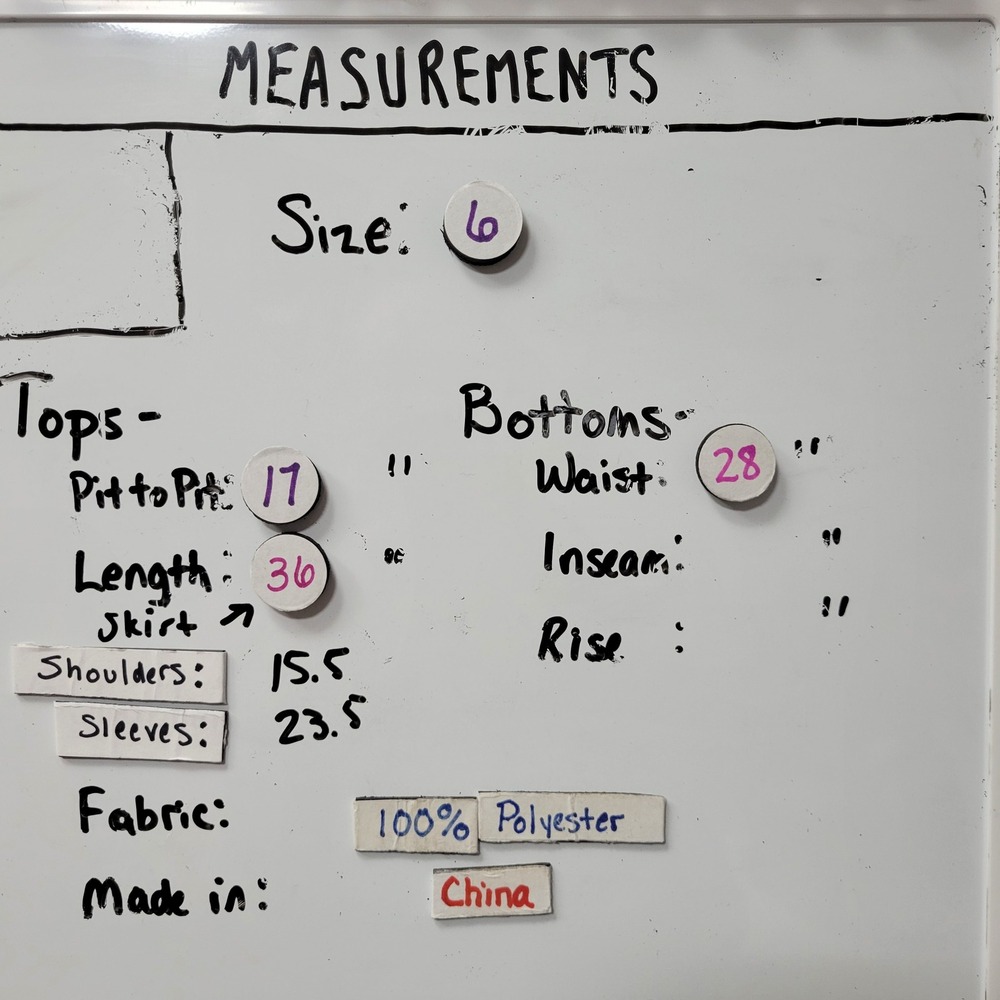 MEASUREMENTS
Size: 6
Tops-
Pit to Pit: 17 "
Length: 36 "
skirt ↗
Shoulders: 15.5
Sleeves: 23.5
Bottoms-
Waist: 28 "
Inseam: "
Rise : "
Fabric: 100% Polyester
Made in: China